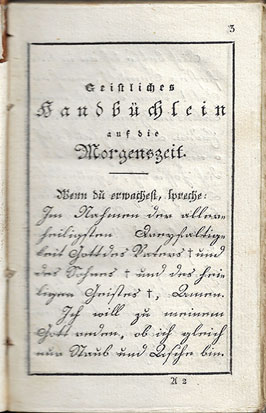 3
Geistliches
Handbüchlein
auf die
Morgenszeit.
Wenn du erwachest, spreche:
Im Nahmen der aller-
heiligsten Dreyfaltig-
keit Gott des Vaters † und
des Sohnes † und des hei-
ligen Geistes †, Amen.
Ich will zu meinem
Gott reden, ob ich gleich
nur Staub und Asche bin.
A 2